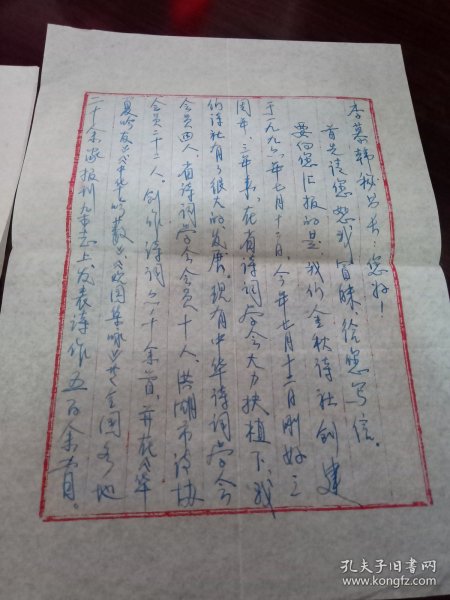 李慕韩秘书长：您好！
首先请您恕我冒昧，给您写信。
要向您汇报的是：我们金秋诗社创建
于一九九六年七月十二日，今年七月十二日刚好三
周年，三年来，在省诗词学会大力扶植下，我
们诗社有了很大的发展。现有中华诗词学会
会员四人，省诗词学会会员十人，洪湖市诗协
会员二十二人。创作诗词 千余首，并在《华
夏吟友》《中华 》《 园集咏》等全国各地
二十余家报刊杂志上，发表诗作五百余首。
孔夫子旧书网
www.kongfz.com